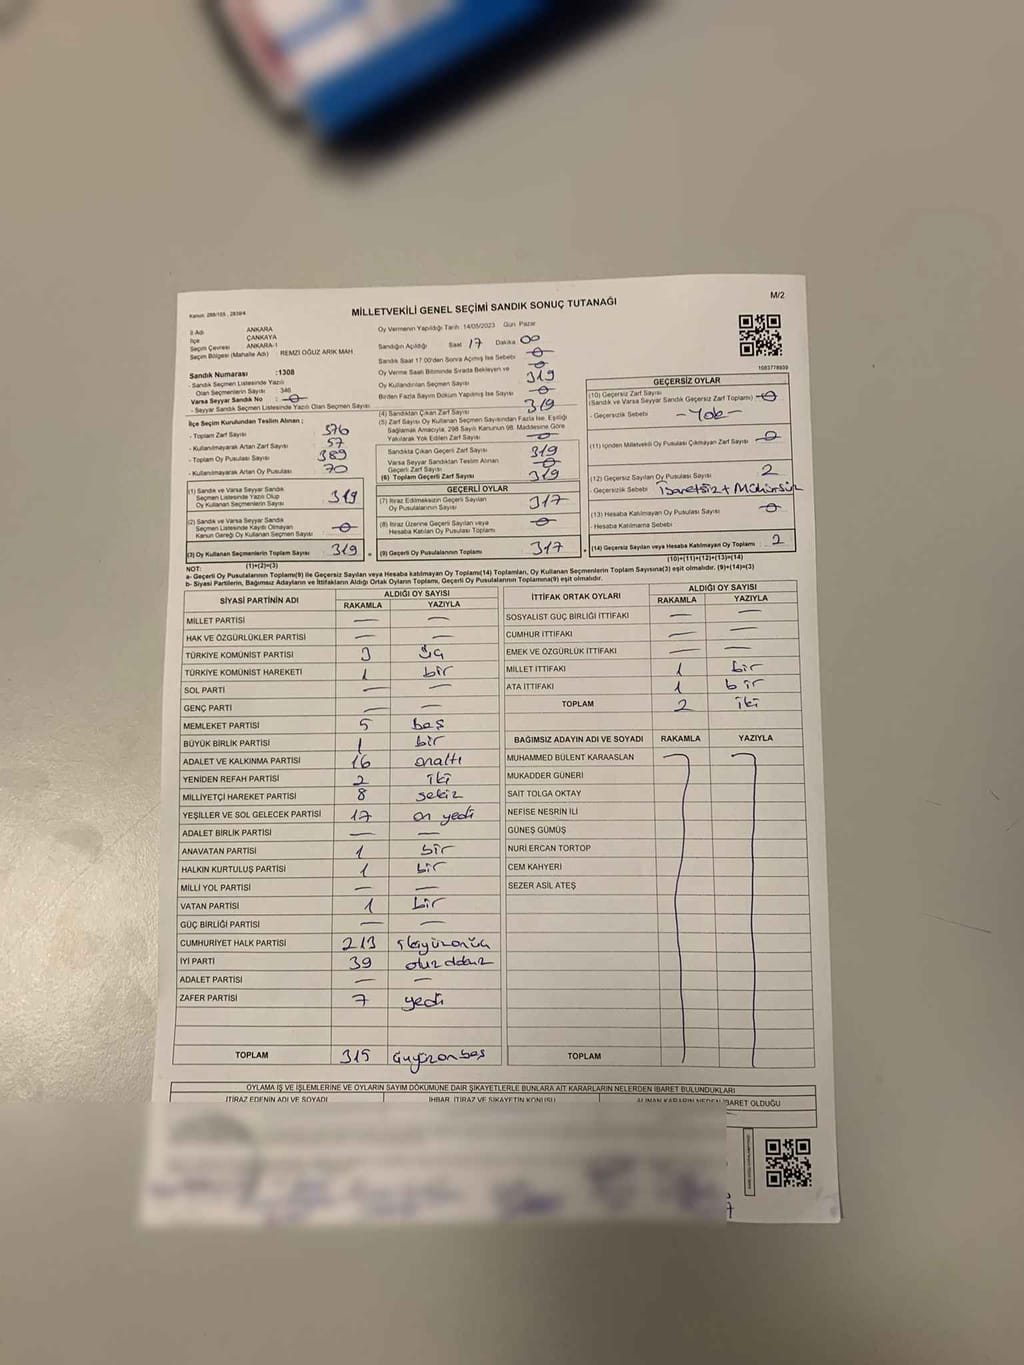 Kanun: 298/105 , 2839/4
MİLLETVEKİLİ GENEL SEÇİMİ SANDIK SONUÇ TUTANAĞI
M/2
İl Adı ANKARA
İlçe ÇANKAYA
Seçim Çevresi ANKARA-1
Seçim Bölgesi (Mahalle Adı) : REMZİ OĞUZ ARIK MAH
Oy Vermenin Yapıldığı Tarih :14/05/2023 Gün: Pazar
Sandığın Açıldığı Saat 17 Dakika 00
Sandık Saat 17:00'den Sonra Açılmış İse Sebebi
Oy Verme Saati Bitiminde Sırada Bekleyen ve
Oy Kullandırılan Seçmen Sayısı 319
Birden Fazla Sayım Döküm Yapılmış İse Sayısı
1083778939
Sandık Numarası :1308
- Sandık Seçmen Listesinde Yazılı
Olan Seçmenlerin Sayısı : 346
Varsa Seyyar Sandık No
- Seyyar Sandık Seçmen Listesinde Yazılı Olan Seçmen Sayısı
İlçe Seçim Kurulundan Teslim Alınan ;
- Toplam Zarf Sayısı 376
- Kullanılmayarak Artan Zarf Sayısı 57
- Toplam Oy Pusulası Sayısı 389
- Kullanılmayarak Artan Oy Pusulası 70
(1) Sandık ve Varsa Seyyar Sandık
Seçmen Listesinde Yazılı Olup
Oy Kullanan Seçmenlerin Sayısı 319
(2) Sandık ve Varsa Seyyar Sandık
Seçmen Listesinde Kayıtlı Olmayan
Kanun Gereği Oy Kullanan Seçmen Sayısı
(3) Oy Kullanan Seçmenlerin Toplam Sayısı 319
(1)+(2)=(3)
(4) Sandıktan Çıkan Zarf Sayısı 319
(5) Zarf Sayısı Oy Kullanan Seçmen Sayısından Fazla İse, Eşitliği
Sağlamak Amacıyla, 298 Sayılı Kanunun 98. Maddesine Göre
Yakılarak Yok Edilen Zarf Sayısı
Sandıkta Çıkan Geçerli Zarf Sayısı 319
Varsa Seyyar Sandıktan Teslim Alınan
Geçerli Zarf Sayısı
(6) Toplam Geçerli Zarf Sayısı 319
GEÇERLİ OYLAR
(7) İtiraz Edilmeksizin Geçerli Sayılan
Oy Pusulalarının Sayısı 317
(8) İtiraz Üzerine Geçerli Sayılan veya
Hesaba Katılan Oy Pusulası Toplamı
= (9) Geçerli Oy Pusulalarının Toplamı 317
GEÇERSİZ OYLAR
(10) Geçersiz Zarf Sayısı
(Sandık ve Varsa Seyyar Sandık Geçersiz Zarf Toplamı)
- Geçersizlik Sebebi -Yok-
(11) İçinden Milletvekili Oy Pusulası Çıkmayan Zarf Sayısı
(12) Geçersiz Sayılan Oy Pusulası Sayısı 2
- Geçersizlik Sebebi İşaretsiz + Mühürsüz
(13) Hesaba Katılmayan Oy Pusulası Sayısı
- Hesaba Katılmama Sebebi
+ (14) Geçersiz Sayılan veya Hesaba Katılmayan Oy Toplamı 2
(10)+(11)+(12)+(13)=(14)
NOT:
a- Geçerli Oy Pusulalarının Toplamı(9) ile Geçersiz Sayılan veya Hesaba katılmayan Oy Toplamı(14) Toplamları, Oy Kullanan Seçmenlerin Toplam Sayısına(3) eşit olmalıdır. (9)+(14)=(3)
b- Siyasi Partilerin, Bağımsız Adayların ve İttifakların Aldığı Ortak Oyların Toplamı, Geçerli Oy Pusulalarının Toplamına(9) eşit olmalıdır.
SİYASİ PARTİNİN ADI ALDIĞI OY SAYISI
RAKAMLA YAZIYLA
MİLLET PARTİSİ — —
HAK VE ÖZGÜRLÜKLER PARTİSİ — —
TÜRKİYE KOMÜNİST PARTİSİ 3 üç
TÜRKİYE KOMÜNİST HAREKETİ 1 bir
SOL PARTİ — —
GENÇ PARTİ — —
MEMLEKET PARTİSİ 5 beş
BÜYÜK BİRLİK PARTİSİ 1 bir
ADALET VE KALKINMA PARTİSİ 16 onaltı
YENİDEN REFAH PARTİSİ 2 iki
MİLLİYETÇİ HAREKET PARTİSİ 8 sekiz
YEŞİLLER VE SOL GELECEK PARTİSİ 17 on yedi
ADALET BİRLİK PARTİSİ — —
ANAVATAN PARTİSİ 1 bir
HALKIN KURTULUŞ PARTİSİ 1 bir
MİLLİ YOL PARTİSİ — —
VATAN PARTİSİ 1 bir
GÜÇ BİRLİĞİ PARTİSİ — —
CUMHURİYET HALK PARTİSİ 213 ikiyüzonüç
İYİ PARTİ 39 otuzdokuz
ADALET PARTİSİ — —
ZAFER PARTİSİ 7 yedi
TOPLAM 315 üçyüzonbeş
İTTİFAK ORTAK OYLARI ALDIĞI OY SAYISI
RAKAMLA YAZIYLA
SOSYALİST GÜÇ BİRLİĞİ İTTİFAKI — —
CUMHUR İTTİFAKI — —
EMEK VE ÖZGÜRLÜK İTTİFAKI — —
MİLLET İTTİFAKI 1 bir
ATA İTTİFAKI 1 bir
TOPLAM 2 iki
BAĞIMSIZ ADAYIN ADI VE SOYADI RAKAMLA YAZIYLA
MUHAMMED BÜLENT KARAASLAN
MUKADDER GÜNERİ
SAİT TOLGA OKTAY
NEFİSE NESRİN İLİ
GÜNEŞ GÜMÜŞ
NURİ ERCAN TORTOP
CEM KAHYERİ
SEZER ASİL ATEŞ
TOPLAM
OYLAMA İŞ VE İŞLEMLERİNE VE OYLARIN SAYIM DÖKÜMÜNE DAİR ŞİKAYETLERLE BUNLARA AİT KARARLARIN NELERDEN İBARET BULUNDUKLARI
İTİRAZ EDENİN ADI VE SOYADI İHBAR, İTİRAZ VE ŞİKAYETİN KONUSU ALINAN KARARIN NEDEN İBARET OLDUĞU